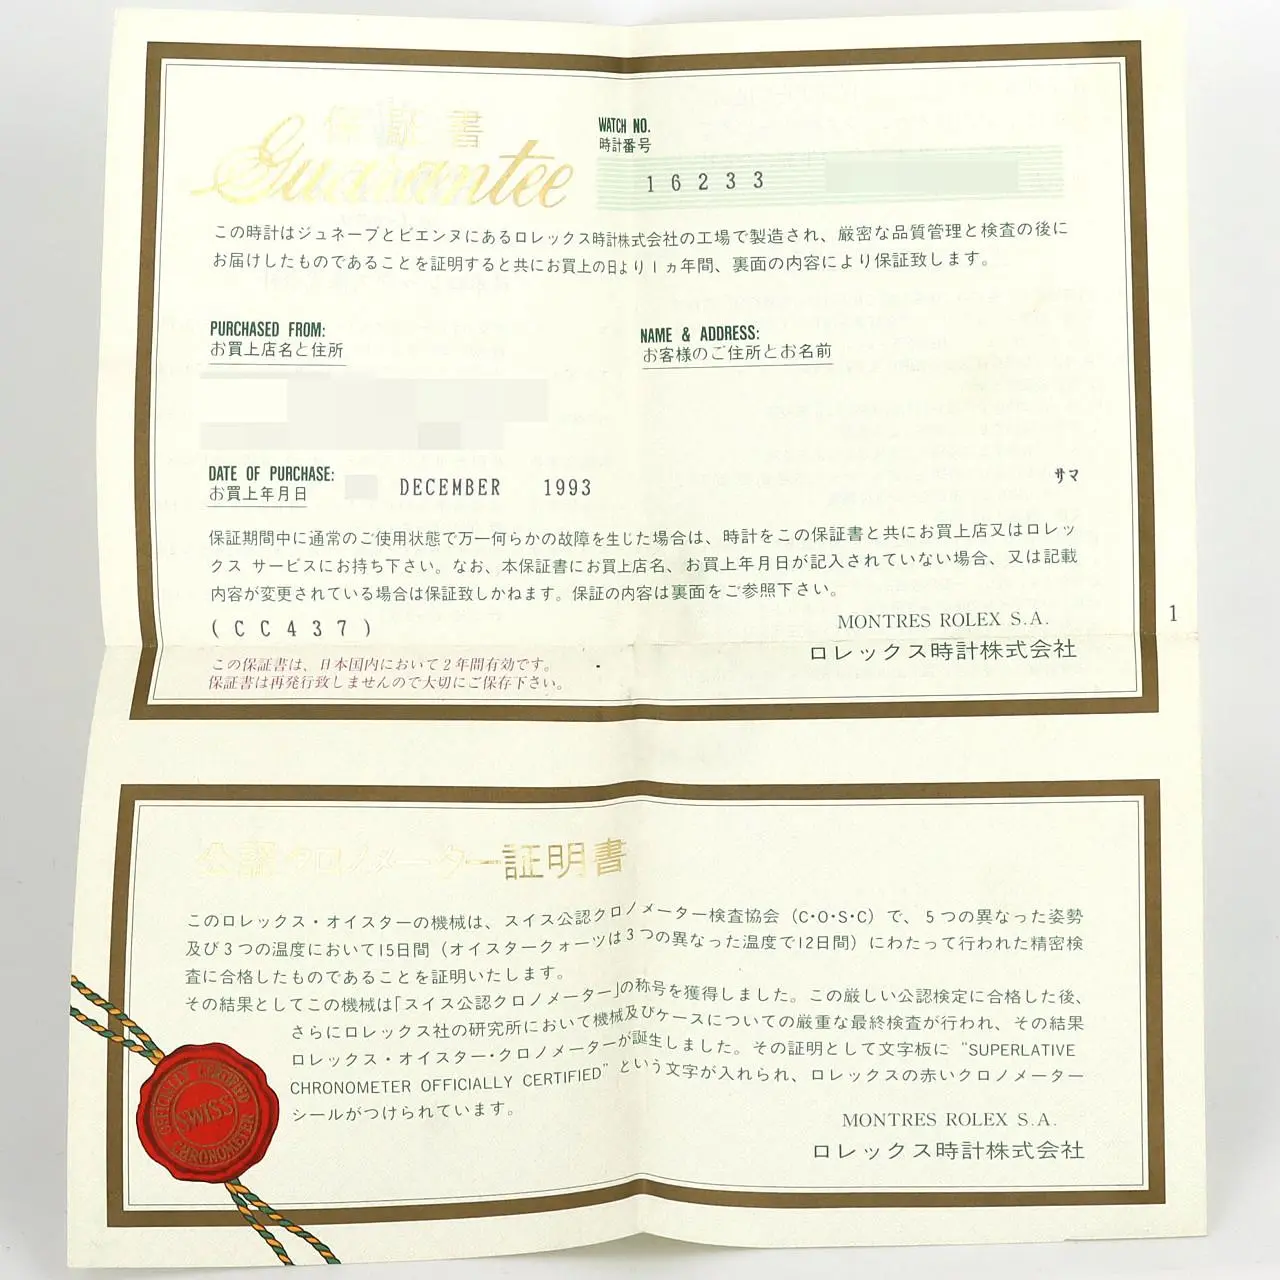 保証書
Guarantee
WATCH NO.
時計番号
16233
この時計はジュネーブとビエンヌにあるロレックス時計株式会社の工場で製造され、厳密な品質管理と検査の後に
お届けしたものであることを証明すると共にお買上の日より1ヵ年間、裏面の内容により保証致します。
PURCHASED FROM:
お買上店名と住所
NAME & ADDRESS:
お客様のご住所とお名前
DATE OF PURCHASE:
お買上年月日
DECEMBER 1993
サマ
保証期間中に通常のご使用状態で万一何らかの故障を生じた場合は、時計をこの保証書と共にお買上店又はロレッ
クス サービスにお持ち下さい。なお、本保証書にお買上店名、お買上年月日が記入されていない場合、又は記載
内容が変更されている場合は保証致しかねます。保証の内容は裏面をご参照下さい。
(CC437)
MONTRES ROLEX S.A.
ロレックス時計株式会社
この保証書は、日本国内において2年間有効です。
保証書は再発行致しませんので大切にご保存下さい。
1
公認クロノメーター証明書
このロレックス・オイスターの機械は、スイス公認クロノメーター検査協会（C・O・S・C）で、5つの異なった姿勢
及び3つの温度において15日間（オイスタークォーツは3つの異なった温度で12日間）にわたって行われた精密検
査に合格したものであることを証明いたします。
その結果としてこの機械は「スイス公認クロノメーター」の称号を獲得しました。この厳しい公認検定に合格した後、
さらにロレックス社の研究所において機械及びケースについての厳重な最終検査が行われ、その結果
ロレックス・オイスター・クロノメーターが誕生しました。その証明として文字板に "SUPERLATIVE
CHRONOMETER OFFICIALLY CERTIFIED" という文字が入れられ、ロレックスの赤いクロノメーター
シールがつけられています。
MONTRES ROLEX S.A.
ロレックス時計株式会社
OFFICIALLY CERTIFIED
SWISS
CHRONOMETER